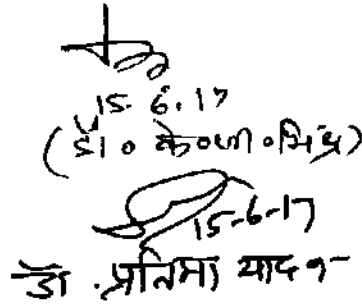 15.6.17
(डॉ० के०जी०मिश्र)
15-6-17
डॉ.प्रतिमा यादव